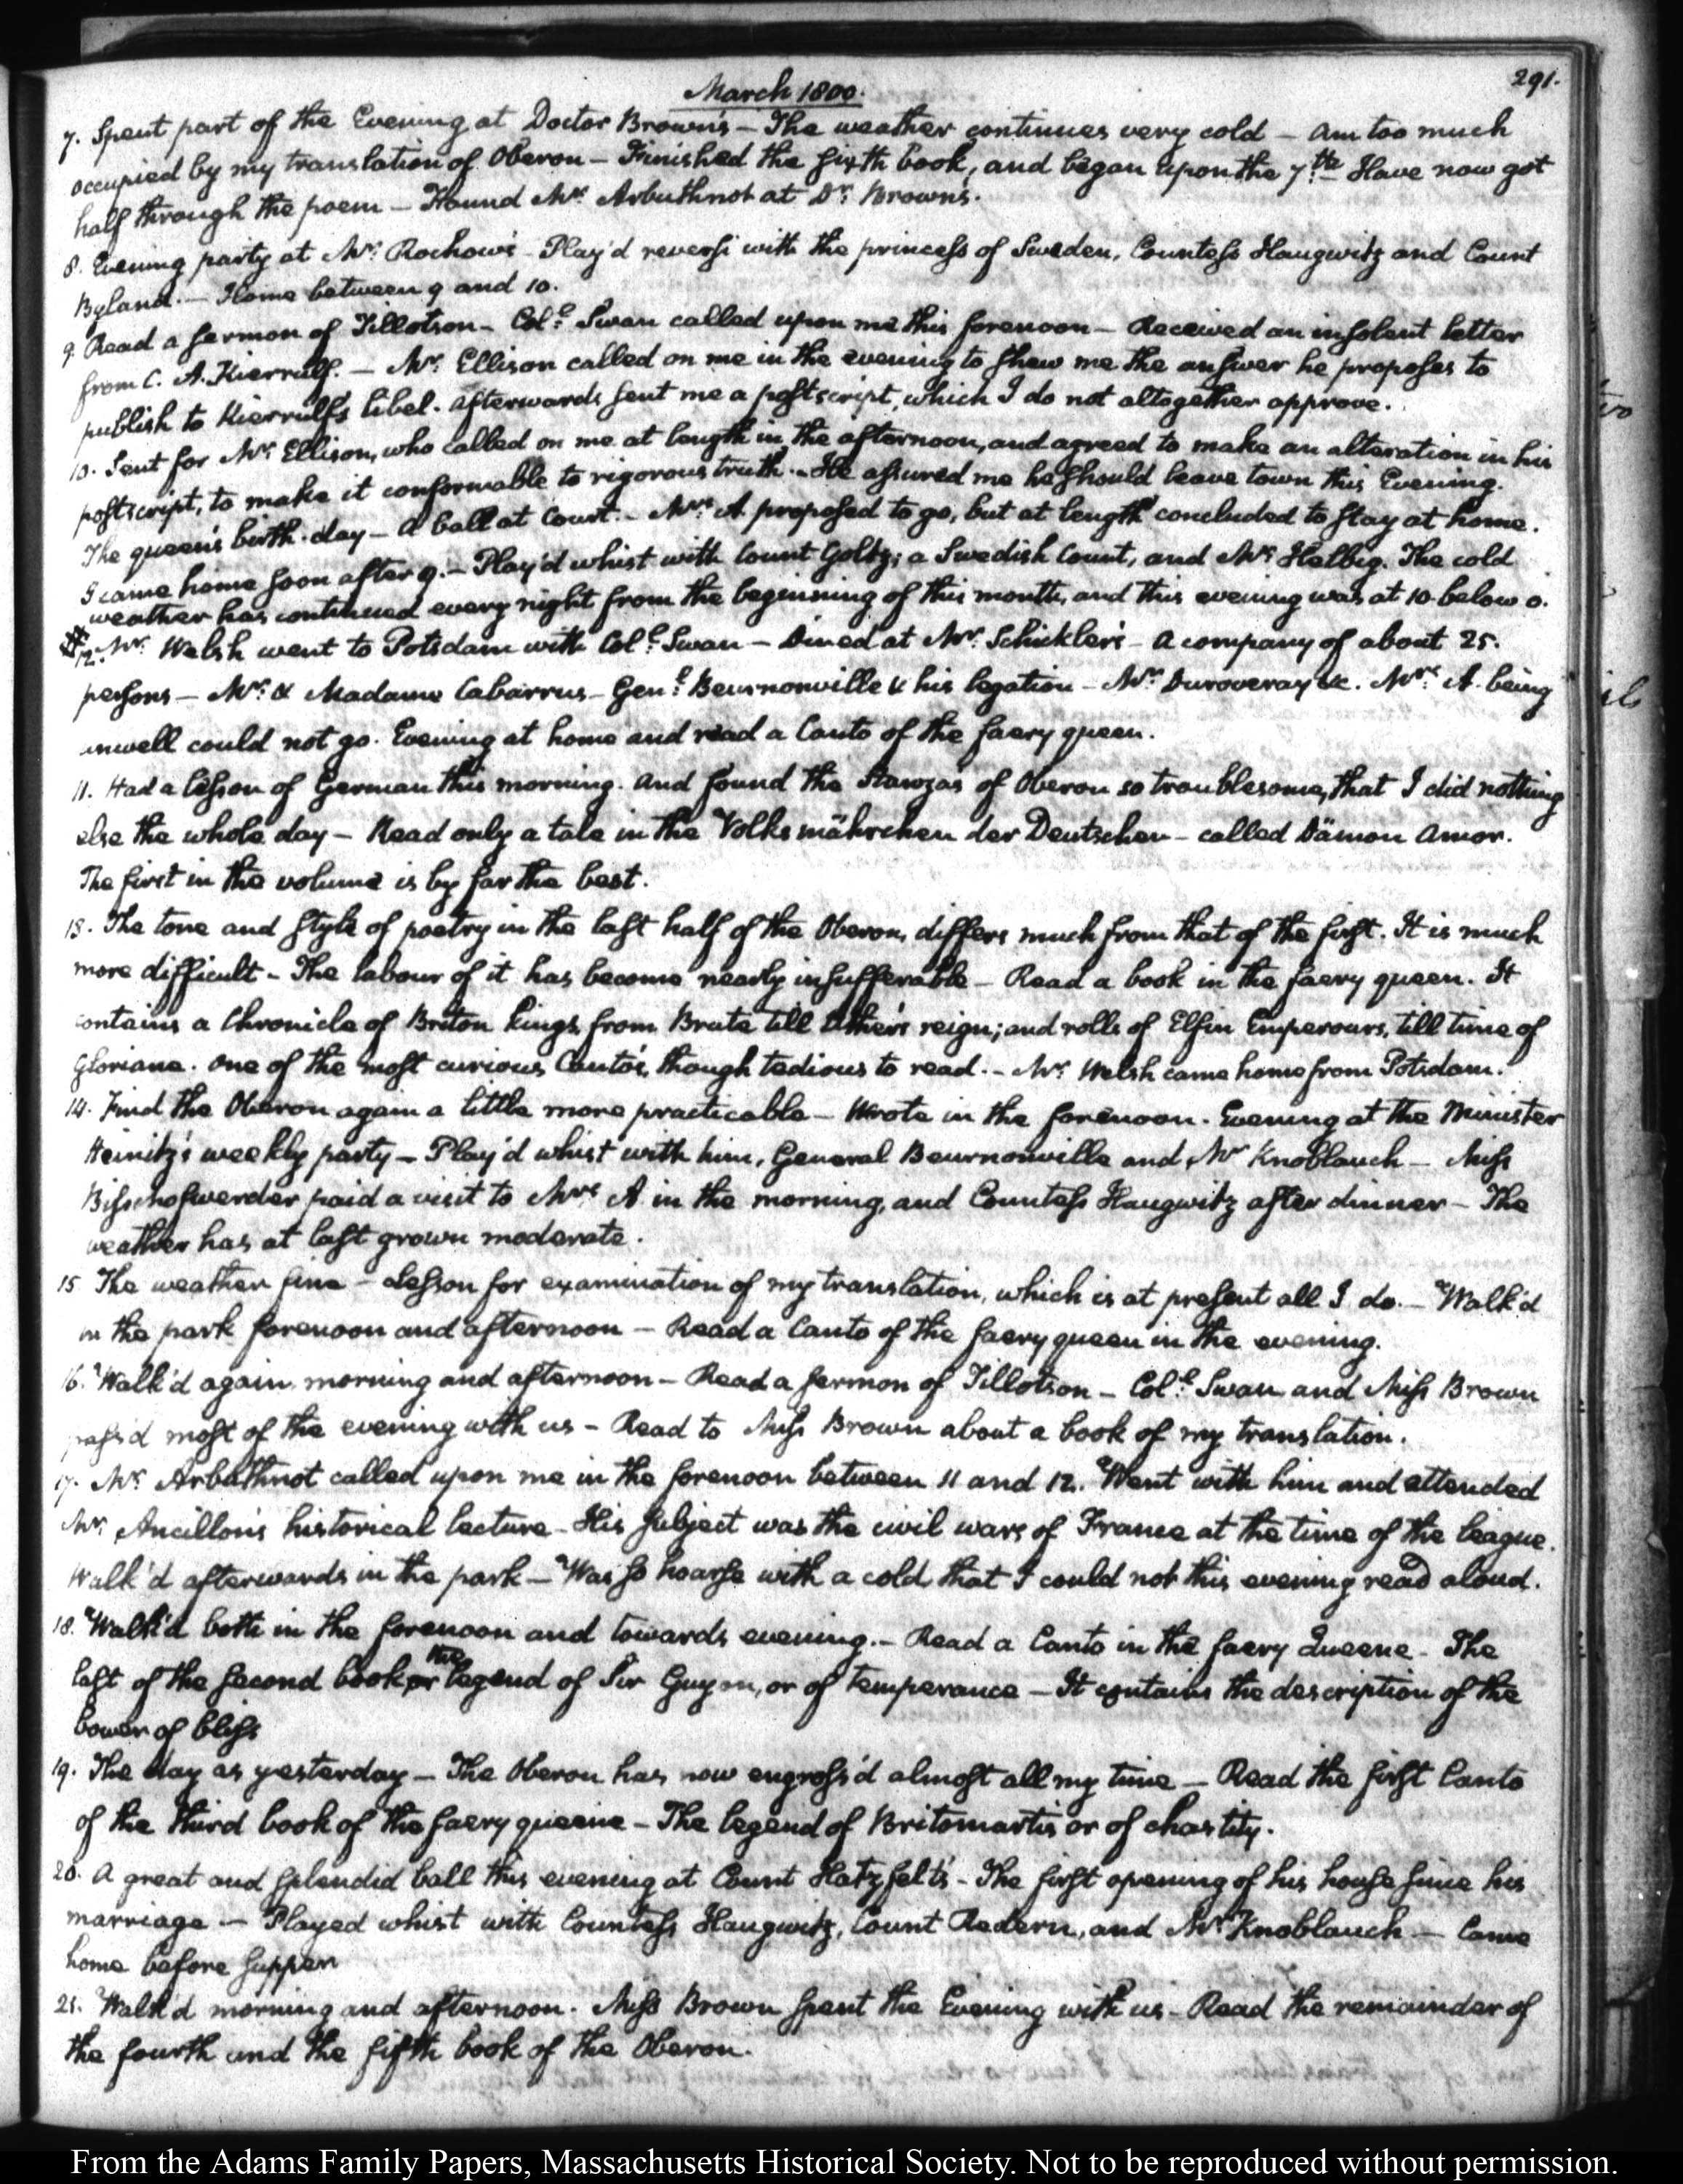 291.
March 1800.
7. Spent part of the Evening at Doctor Brown's — The weather continues very cold — Am too much
occupied by my translation of Oberon — Finished the sixth book, and began upon the 7th. Have now got
half through the poem — Found Mr. Arbuthnot at Dr. Brown's.
8. Evening party at Mr. Rochow's — Play'd reversi with the princess of Sweden, Countess Haugwitz and Count
Byland. — Home between 9 and 10.
9. Read a sermon of Tillotson — Coll. Swan called upon me this forenoon — Received an insolent letter
from C. A. Kierrulf. — Mr. Ellison called on me in the evening to shew me the answer he proposes to
publish to Kierrulf's libel. Afterwards sent me a postscript, which I do not altogether approve.
10. Sent for Mr. Ellison, who called on me at length in the afternoon, and agreed to make an alteration in his
postscript, to make it conformable to rigorous truth. — He assured me he should leave town this Evening.
The queen's birth-day — A ball at Court. — Mrs. A. proposed to go, but at length concluded to stay at home.
I came home soon after 9. — Play'd whist with Count Goltz; a Swedish Count, and Mr. Helbig. The cold
weather has continued every night from the beginning of this month, and this evening was at 10 below 0.
12. Mr. Welsh went to Potsdam with Coll. Swan — Dined at Mr. Schickler's — A company of about 25.
persons — Mr. & Madame Cabarrus — Genl. Beurnonville & his legation — Mr. Duroveray &c. Mrs. A. being
unwell could not go. Evening at home and read a Canto of the faery queen.
11. Had a lesson of German this morning. And found the Stanzas of Oberon so troublesome, that I did nothing
else the whole day — Read only a tale in the Volksmährchen der Deutschen — called Dämon Amor.
The first in the volume is by far the best.
13. The tone and style of poetry in the last half of the Oberon, differs much from that of the first. It is much
more difficult — The labour of it has become nearly insufferable — Read a book in the faery queen. It
contains a Chronicle of Briton kings, from Brute till Uther's reign; and rolls of Elfin Emperours, till time of
Gloriane. One of the most curious Canto's, though tedious to read. — Mr. Welsh came home from Potsdam.
14. Find the Oberon again a little more practicable — Wrote in the forenoon. Evening at the Minister
Heinitz's weekly party — Play'd whist with him, General Beurnonville and Mr. Knoblauch — Miss
Bisschofswerder paid a visit to Mrs. A. in the morning, and Countess Haugwitz after dinner — The
weather has at last grown moderate.
15 The weather fine — Lesson for examination of my translation, which is at present all I do. — Walk'd
in the park forenoon and afternoon — Read a Canto of the faery queen in the evening.
16. Walk'd again, morning and afternoon — Read a sermon of Tillotson — Coll. Swan and Miss Brown
pass'd most of the evening with us — Read to Miss Brown about a book of my translation.
17. Mr. Arbuthnot called upon me in the forenoon between 11 and 12. Went with him and attended
Mr. Ancillon's historical lecture — His subject was the civil wars of France at the time of the league.
Walk'd afterwards in the park — Was so hoarse with a cold that I could not this evening read aloud.
18. Walk'd both in the forenoon and towards evening. — Read a Canto in the faery Queene — The
last of the second book, or the legend of Sir Guyon, or of Temperance — It contains the description of the
bower of bliss
19. The day as yesterday — The Oberon has now engross'd almost all my time — Read the first Canto
of the third book of the faery queene — The legend of Britomartis or of chastity.
20. A great and splendid ball this evening at Count Hatzfelt's — The first opening of his house since his
marriage — Played whist with Countess Haugwitz, Count Redern, and Mr. Knoblauch — Came
home before supper
21. Walk'd morning and afternoon. Miss Brown spent the Evening with us — Read the remainder of
the fourth and the fifth book of the Oberon.
From the Adams Family Papers, Massachusetts Historical Society. Not to be reproduced without permission.